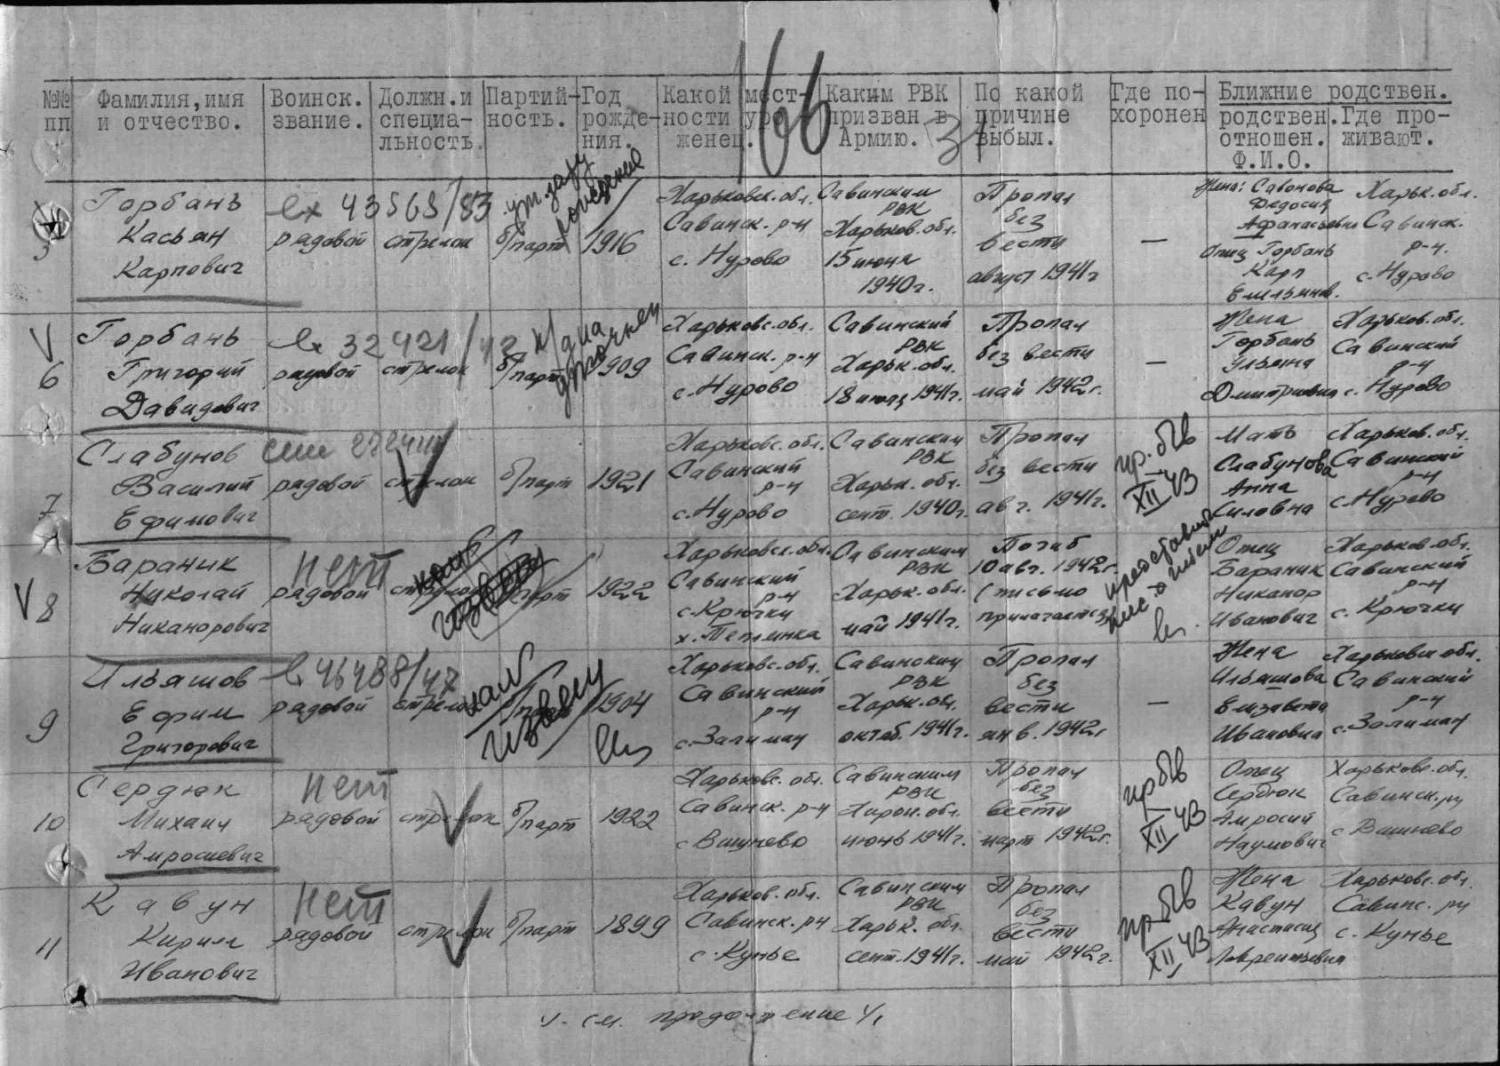 166
31
№№ пп
Фамилия, имя и отчество.
Воинск. звание.
Должн. и специа-льность.
Партий-ность.
Год рожде-ния.
Какой мест-ности уро-женец.
Каким РВК призван в Армию.
По какой причине выбыл.
Где по-хоронен
Ближние родствен.
родствен. отношен. Ф.И.О.
Где про-живают.
5
Горбань
Касьян
Карпович
рядовой
стрелок
б/парт
1916
Харьковск. обл.
Савинск. р-н
с. Нурово
Савинским
РВК
Харьков. обл.
15 июня
1940г.
Пропал
без
вести
август 1941г
—
Жена: Сафонова
Федосия
Афанасьевна
Отец Горбань
Карп
Емельянов.
Харьк. обл.
Савинск.
р-н.
с. Нурово
6
Горбань
Григорий
Давидович
рядовой
стрелок
б/парт
1909
Харьковс. обл.
Савинск. р-н
с. Нурово
Савинский
РВК
Харьк. обл.
18 июля 1941г.
Пропал
без вести
май 1942г.
—
Жена
Горбань
Ульяна
Дмитриевна
Харьков. обл.
Савинский
р-н
с. Нурово
7
Слабунов
Василий
Ефимович
рядовой
стрелок
б/парт
1921
Харьковс. обл.
Савинский
р-н
с. Нурово
Савинским
РВК
Харьк. обл.
сент. 1940г.
Пропал
без вести
авг. 1941г.
пр. б/в
XII 43
Мать
Слабунова
Анна
Силовна
Харьков. обл.
Савинский
р-н
с. Нурово
8
Бараник
Николай
Никанорович
нет
рядовой
1922
Харьковск. обл.
Савинский
р-н
с. Крючки
х. Теплинка
Савинским
РВК
Харьк. обл.
май 1941г.
Погиб
10 авг. 1942г.
(письмо
прилагается)
Отец
Бараник
Никанор
Иванович
Харьков. обл.
Савинский
р-н
с. Крючки
9
Ильяшов
Ефим
Григорович
рядовой
стрелок
извещ
1904
Харьковс. обл.
Савинский
р-н
с. Залиман
Савинским
РВК
Харьк. обл.
октяб. 1941г.
Пропал
без
вести
янв. 1942г
—
Жена
Ильяшова
Елизавета
Ивановна
Харьковск обл.
Савинский
р-н
с. Залиман
10
Сердюк
Михаил
Амросиевич
нет
рядовой
стрелок
б/парт
1922
Харьковс. обл.
Савинск. р-н
с Вишнево
Савинским
РВК
Харьк. обл.
июнь 1941г.
Пропал
без
вести
март 1942г.
пр б/в
XII 43
Отец
Сердюк
Амросий
Наумович
Харьковс. обл.
Савинск. рн
с Вишнево
11
Кавун
Кирил
Иванович
нет
рядовой
стрелок
б/парт
1899
Харьков. обл.
Савинск. рн
с. Кунье
Савинским
РВК
Харьк. обл.
сент. 1941г.
Пропал
без
вести
май 1942г.
пр. б/в
XII 43
Жена
Кавун
Анастасия
Лаврентьевна
Харьковс. обл.
Савинс. рн
с. Кунье
см. продолжение